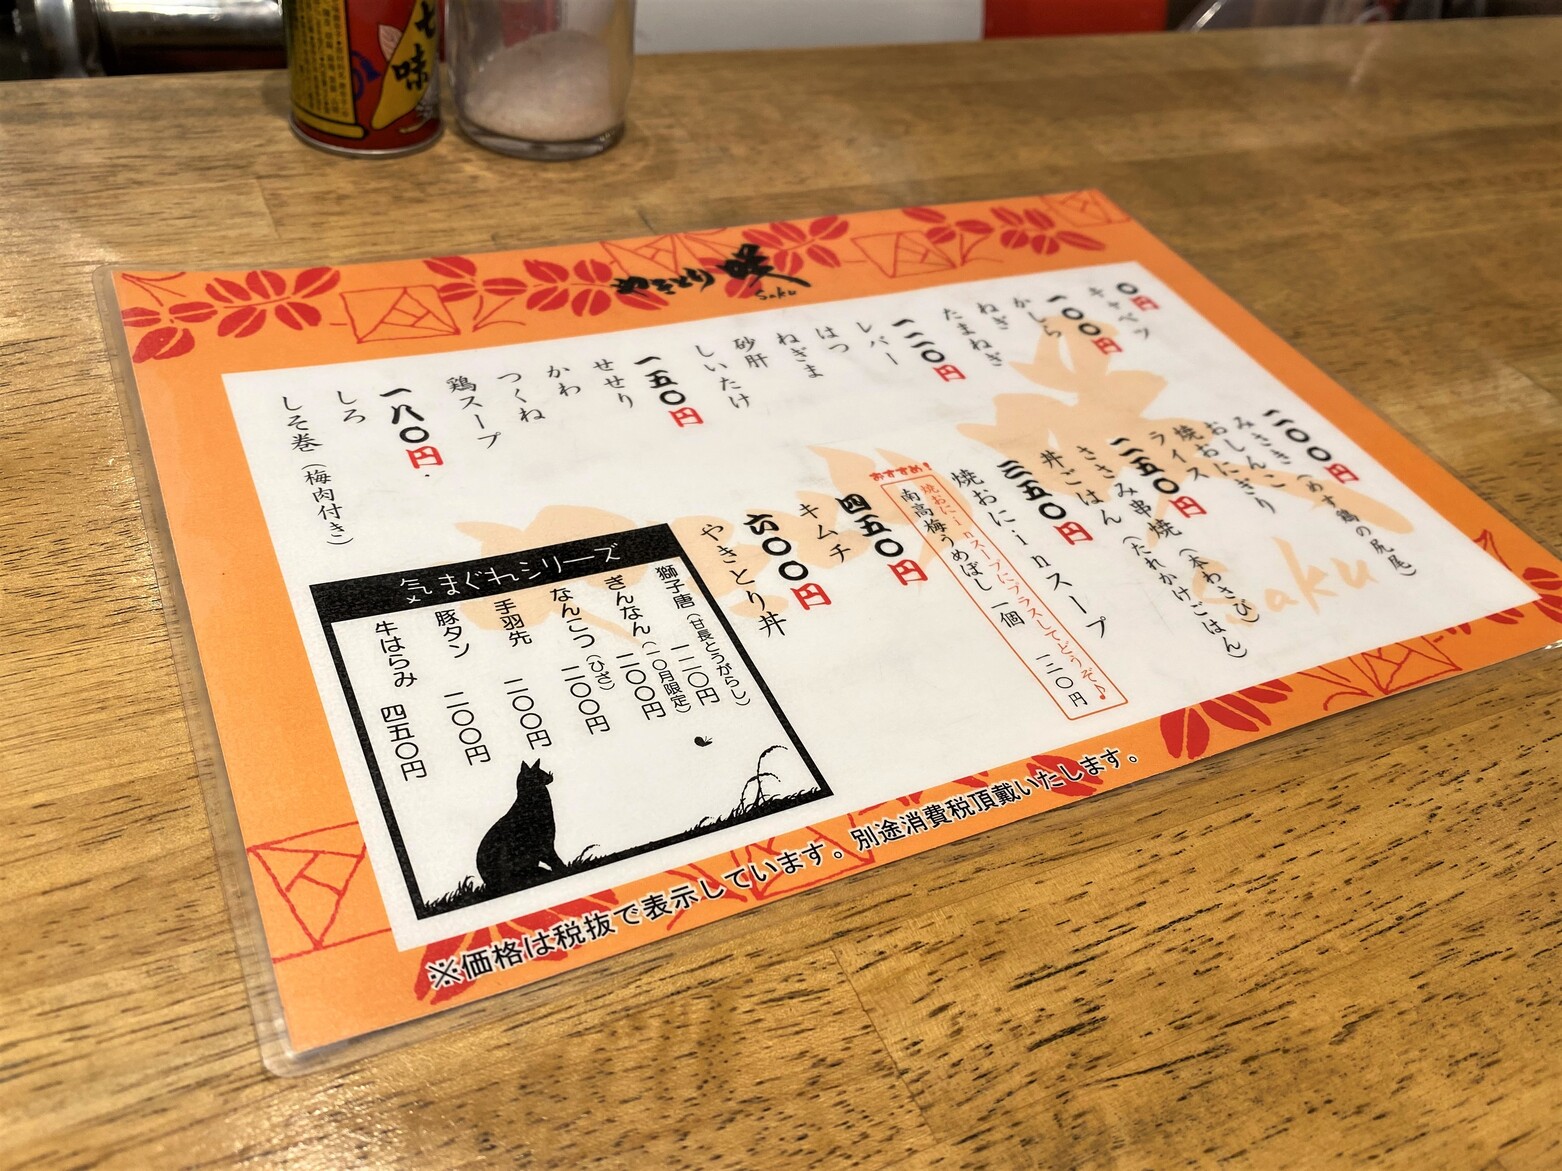 七味
やきとり 咲
Saku
〇円
キャベツ
一〇〇円
かしら
ねぎ
たまねぎ
一二〇円
レバー
はつ
ねぎま
砂肝
しいたけ
一五〇円
せせり
かわ
つくね
鶏スープ
一八〇円
しろ
しそ巻(梅肉付き)
二〇〇円
みさき(めす鶏の尻尾)
おしんこ
焼おにぎり
ライス
二五〇円
ささみ串焼(本わさび)
丼ごはん(たれかけごはん)
三五〇円
焼おにinスープ
おすすめ!
焼おにinスープにプラスしてどうぞ♪
南高梅うめぼし 一個 一三〇円
四五〇円
キムチ
六〇〇円
やきとり丼
気まぐれシリーズ
獅子唐(甘長とうがらし) 一二〇円
ぎんなん(一〇月限定) 二〇〇円
なんこつ(ひざ) 二〇〇円
手羽先 二〇〇円
豚タン 二〇〇円
牛はらみ 四五〇円
Saku
※価格は税抜で表示しています。別途消費税頂戴いたします。